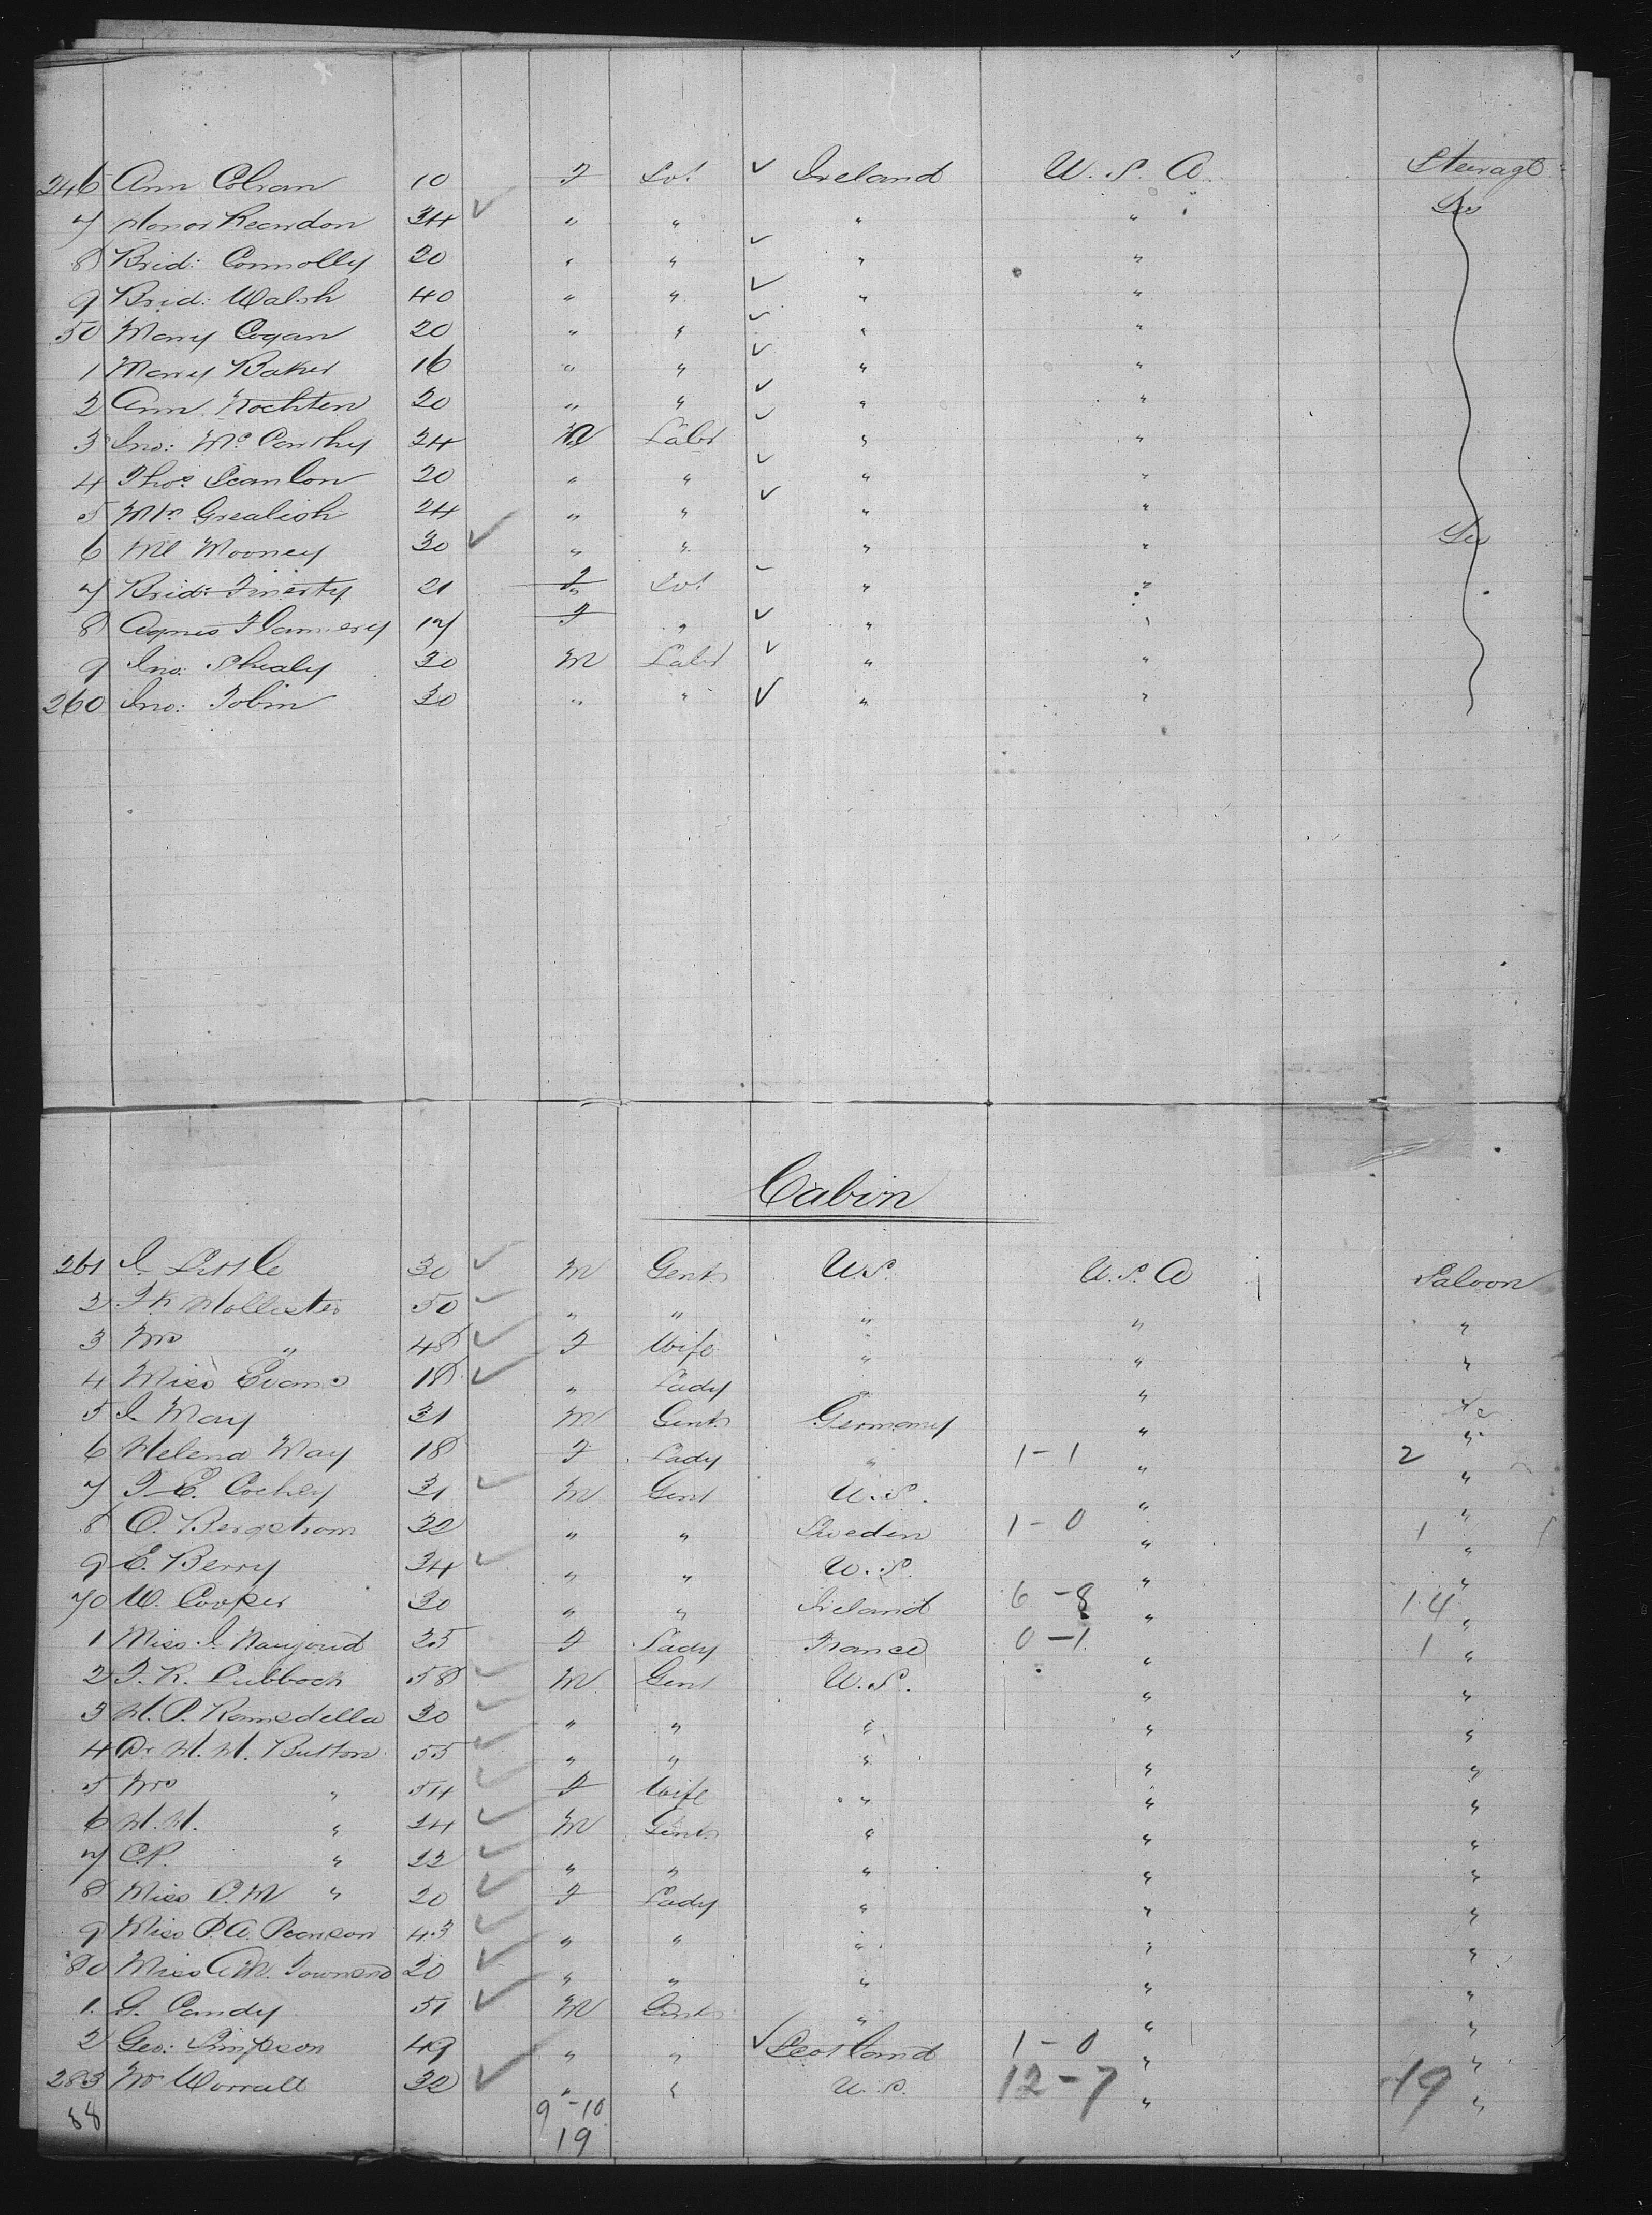 246 Ann Colran 10 F Sp! ✓ Ireland U.S.A. Steerage
7 Honor Reardon 34 ✓ " " " "
8 Brid: Connolly 20 " " ✓ " "
9 Brid: Walsh 40 " " ✓ " "
50 Mary Cogan 20 " " ✓ " "
1 Mary Baker 16 " " ✓ " "
2 Ann 20 " " ✓ " "
3 Jno: McCarthy 24 M Labr ✓ " "
4 Thos Scanlon 20 " " ✓ " "
5 Mtn Grealish 24 " " ✓ " "
6 Ml Mooney 30 ✓ " " " "
7 Brid: Finerty 21 F " "
8 Agnes Flannery 17 F " ✓ " "
9 Jno: Shealy 30 M Labr ✓ " "
260 Jno: Tobin 30 " " ✓ " "
Cabin
261 J. Little 30 ✓ M Gent U.S. U.S.A Saloon
2 F.K. Hollister 50 ✓ " " " " "
3 Mrs " 48 ✓ F Wife " " "
4 Miss Evans 18 ✓ " Lady " "
5 J. May 31 M Gent Germany " "
6 Helena May 18 F Lady " 1-1 " 2 "
7 F.E. Cockey 31 ✓ M Gent U.S. " "
8 O. Bergstrom 32 " " Sweden 1-0 " 1 "
9 E. Berry 34 ✓ " " U.S. " "
70 W. Cooper 30 " " Ireland 6-8 " 14 "
1 Miss J. 25 F Lady France 0-1 " 1 "
2 F.R. Lubbock 58 ✓ M Gent U.S. " "
3 H.P. Ramsdella 30 ✓ " " " " "
4 Dr H.H. Button 55 ✓ " " " " "
5 Mrs " 54 ✓ F Wife " " "
6 H.H. " 24 ✓ M Gent " " "
7 C.P. " 22 ✓ " " " " "
8 Miss L.M " 20 ✓ F Lady " " "
9 Miss P.A. Pearson 43 ✓ " " " " "
80 Miss A.M. Townsend 20 ✓ " " " " "
1. G. Candy 51 ✓ M Gent " " "
2 Geo: Simpson 49 " " ✓ Scotland 1-0 " "
283 Wm Worrall 32 ✓ " " U.S. 12-7 " 19 "
88 9-10
19